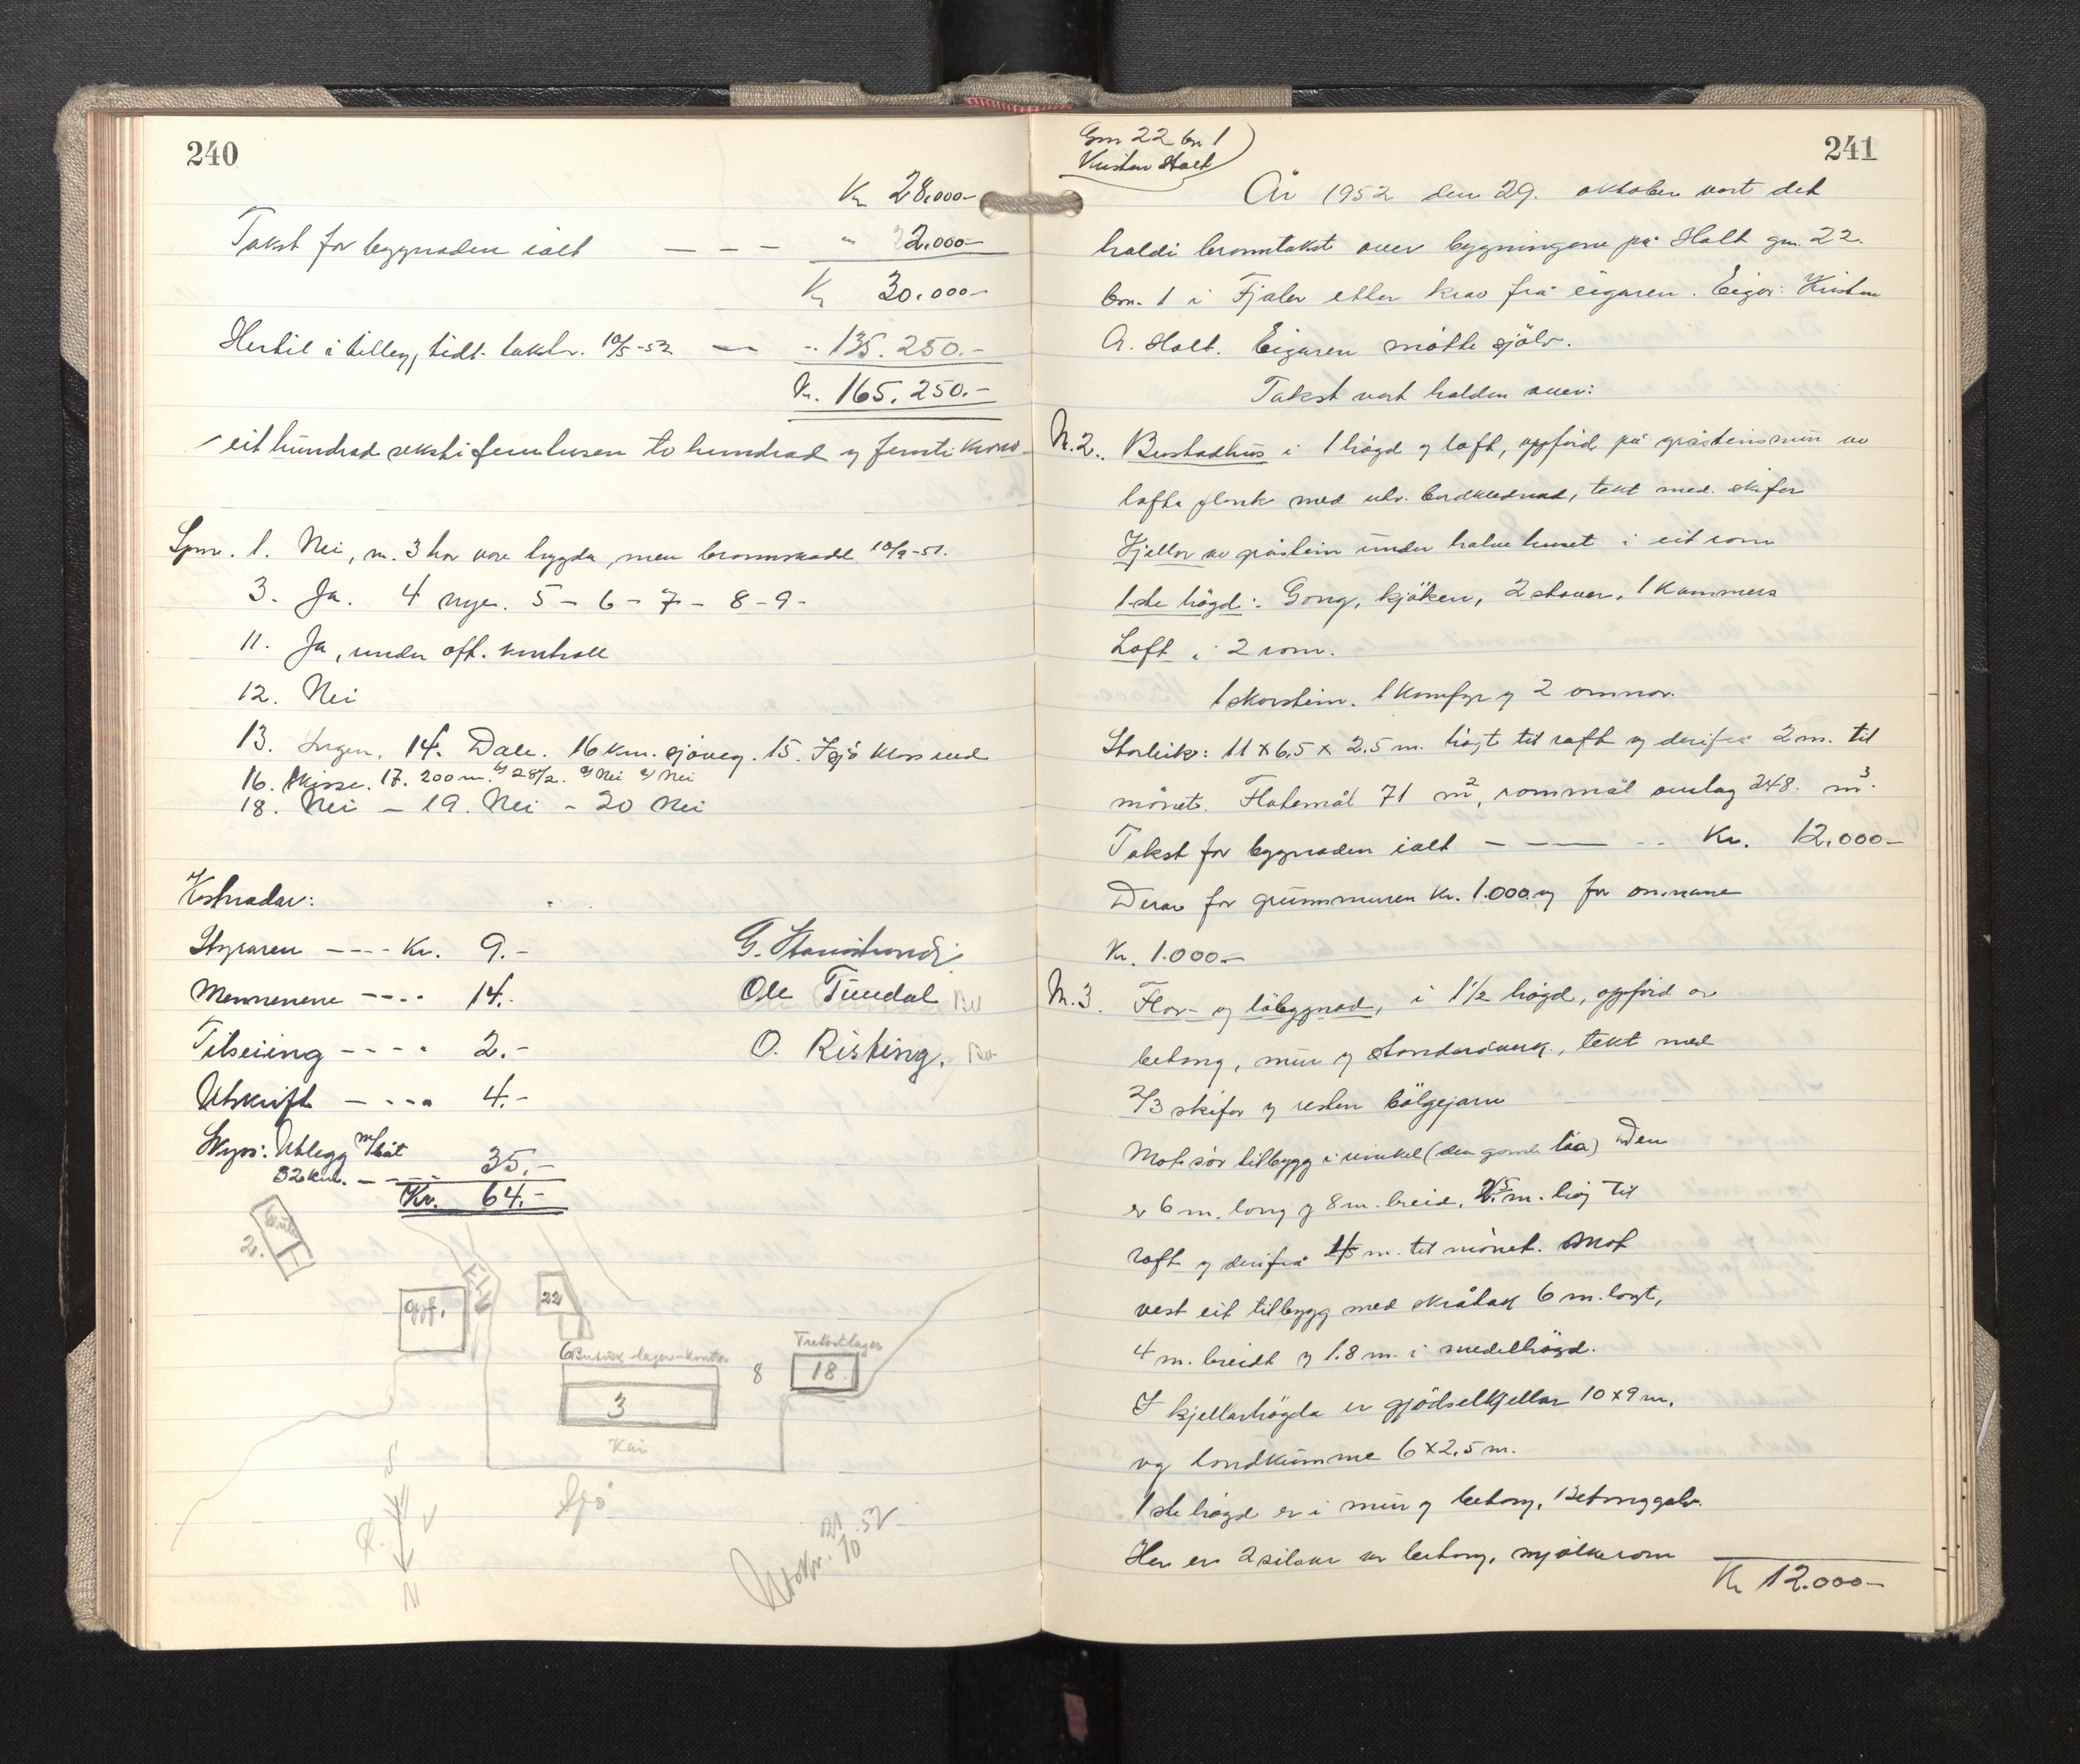 240
Kr 28.000-
Takst for bygnaden ialt - - - " 2.000-
Kr 30.000-
Hertil i tillegg, tidl. takstnr. 10/5-52 - " 135.250.-
Kr. 165.250.-
eit hundrad seksti femtusen to hundrad og femti kroner-
Spm. 1. Nei, nr. 3 har vore bygda, men brannskadd 10/9-51.
3. Ja. 4 nye. 5 - 6 - 7 - 8 - 9 -
11. Ja, under off. kontroll
12. Nei
13. Ingen. 14. Dale. 16 km. sjöveg. 15. Sjö
16. Skisse. 17. 200 m. b) 28/2. Nei Nei
18. Nei - 19. Nei - 20 Nei
Kostnadar:
Styraren ---- Kr. 9.-
Mennenene ---- 14.-
Tilseiing ---- 2.-
Utskrift - --- 4.-
Skyss: Utlegg m/båt
32 km. - -- 35.-
Kr. 64.-
G.
Ole Tundal
O. Risting.
2.
Oppf.
Elv
22
6 Butikk-lager-kontor
3
Kai
8
Trelastlager
18
Sjö
S
V
N
Utskr. 21/10 52
241
Gnr 22 bnr 1
Kristen Holt
År 1952 den 29. oktober vart det
haldi branntakst over bygningane på Holt gnr. 22.
bnr. 1 i Fjaler etter krav frå eigaren. Eigar: Kristen
A. Holt. Eigaren møtte sjölv.
Takst vart halden over:
Nr. 2. Bustadhus i 1 högd og loft, oppförd på gråsteinsmur av
lafta plank med utv. bordklednad, tekt med skifer
Kjellar av gråstein under halve huset i eit rom
1ste högd: Gang, kjöken, 2 stover, 1 kammers
Loft i 2 rom.
1 skorstein. 1 komfyr og 2 omnar.
Storleik: 11 x 6,5 x 2.5 m. högt til raft og derifrå 2 m. til
mönet. Flatemål 71 m², rommål omlag 248. m³.
Takst for bygnaden ialt - - - - - Kr. 12.000-
Derav for grunnmuren kr. 1.000 og for omnane
Kr. 1.000-
Nr. 3. Flor- og löbygnad, i 1½ högd, oppförd av
betong, mur og standardverk, tekt med
2/3 skifer og resten bölgejarn
Mot sör tilbygg i vinkel (den gamle löa) Den
er 6 m. long og 8 m. breid, 2.5 m. höj til
raft og derifrå m. til mönet. Mot
vest eit tilbygg med skråtak 6 m. langt,
4 m. breidt og 1.8 m. i medelhögd.
I kjellarhögda er gjödselkjellar 10 x 9 m.
og landkumme 6 x 2.5 m.
1ste högd er i mur og betong, Betonggolv.
Her er 2 siloar av betong, mjölkerom
Kr 12.000-